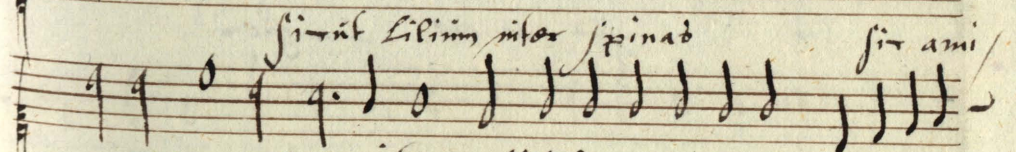 Sicut Lilium inter spinas sic ami